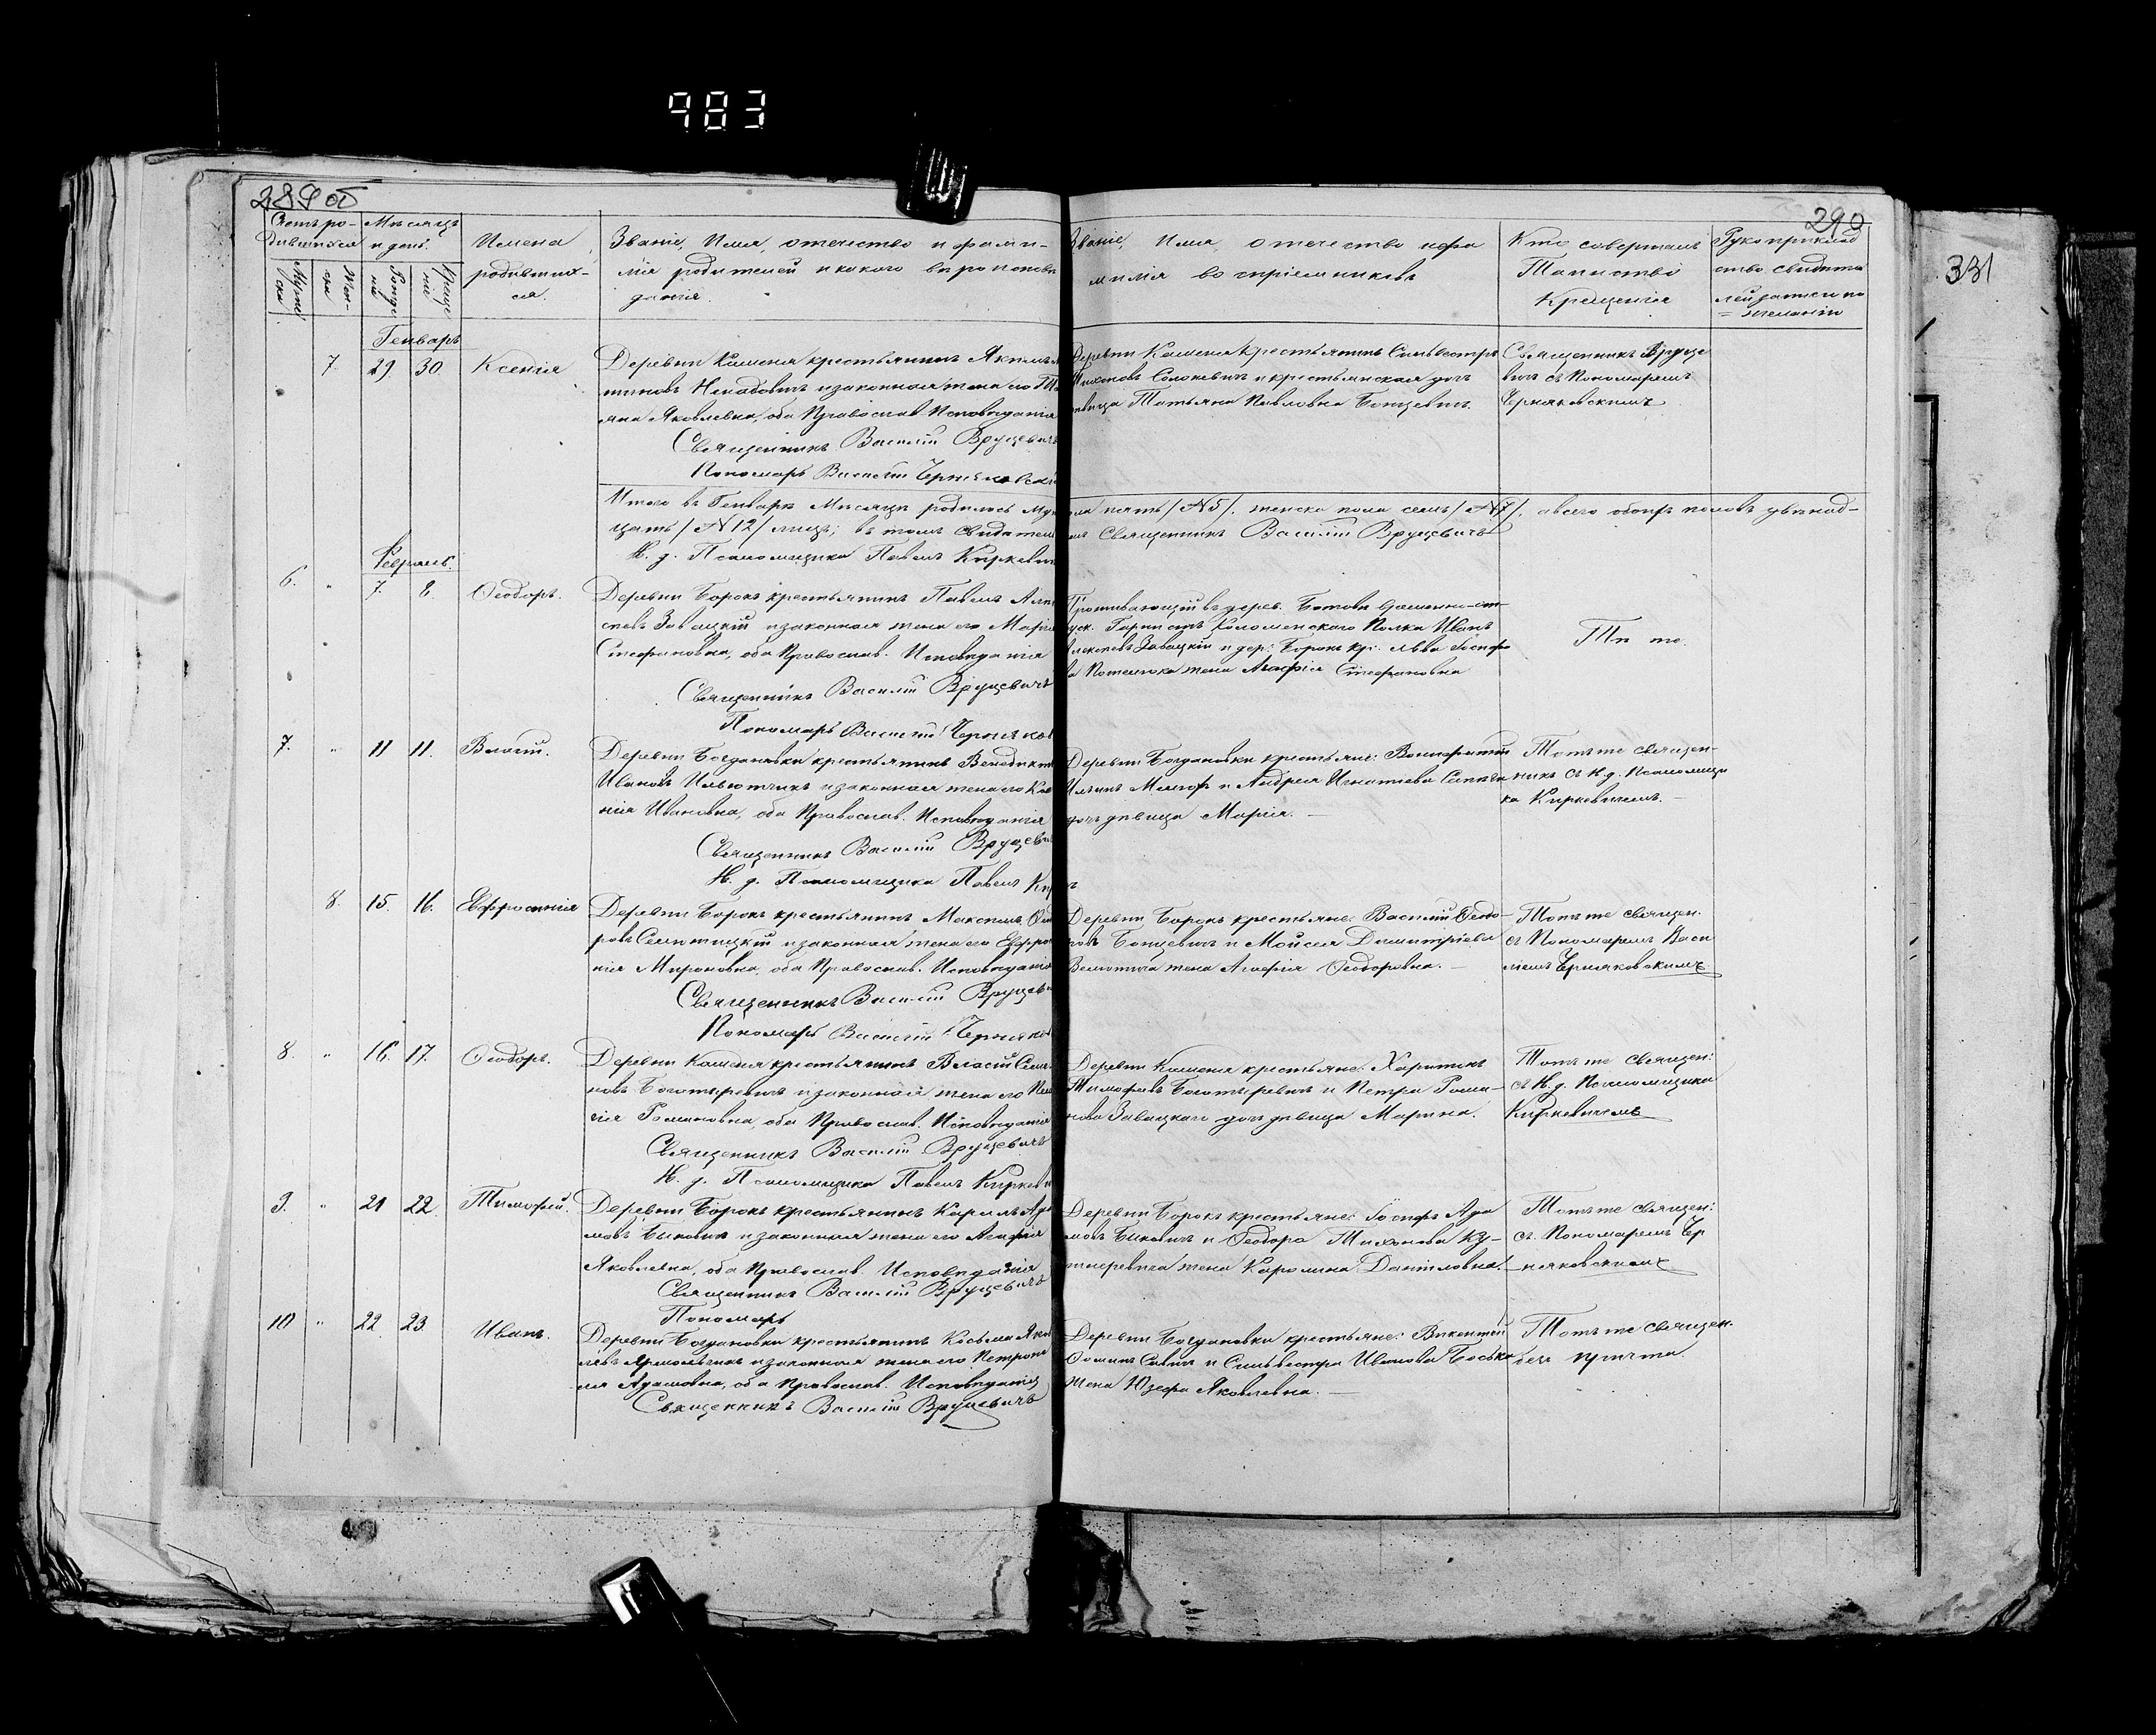 983
289 об
290
331
Счетъ ро-
дившихся
Мѣсяцъ
и день.
Имена
родивших-
ся.
Званіе, Имя, отечество и фами-
лія родителей и какого вѣроисповѣ
данія.
Званіе, Имя, отечество и фа
милія воспріемниковъ
Кто совершалъ
Таинство
Крещенія
Рукоприклад
ство свидѣте
лей записи по
желанію
Мужес
ка
Жен-
ска
Рожде
нія
Креще
нія
Генварь
7. 29. 30. Ксенія
Деревни Каменя крестьянинъ Якимъ
Ненадовичъ и законная жена его
Яковлевна, оба Православ. Исповѣданія
Священникъ Василій Вруцевичъ
Пономарь Василій Черняковскій
Деревни Каменя крестьянинъ Сильвестръ
Тихоновъ Солоневичъ и крестьянская дочь
Татьяна Павловна Бонцевичъ.
Священникъ Вруце
вичъ съ Пономаремъ
Черняковскимъ
Итого въ Генварѣ Мѣсяцѣ родилось
пять /№5/, женска пола семь /№7/, а всего обоихъ половъ двѣнад-
цать /№12/ лицъ; въ томъ Свидѣтель
Священникъ Василій Вруцевичъ
И. д. Псаломщика Павелъ Киркевич
Февраль.
6. " 7. 8. Ѳеодоръ.
Деревни Борокъ крестьянинъ Павелъ
Завацкій и законная жена его Марія
Стефановна, оба Православ. Исповѣданія
Священникъ Василій Вруцевичъ
Пономарь Василій Черняков
Проживающій въ дерев.
Коломенскаго Полка Иванъ
Алексѣевъ Завацкій и дер. Борокъ кр. Льва Іосифо
ва жена Агафія Стефановна
Тѣ же.
7. " 11 11. Власій.
Деревни Богдановки крестьянинъ Венедиктъ
Ивановъ и законная жена его
Ивановна, оба Православ. Исповѣданія
Священникъ Василій Вруцеви
И. д. Псаломщика Павелъ Кир
Деревни Богдановки крестьяне: Вонифатій
и Андрея Игнатіева Сапѣга
дочь дѣвица Марія.
Тотъ же священ-
никъ съ И. д. Псаломщи
ка Киркевичемъ.
8. 15. 16. Евфросинія
Деревни Борокъ крестьянинъ Максимъ Ѳеодо
ровъ и законная жена его Евфро
Мироновна, оба Православ. Исповѣданія
Священникъ Василій Вруцеви
Пономарь Василій Черняков
Деревни Борокъ крестьяне: Василій Ѳеодо-
ровъ Бонцевичъ и Мойсея Димитріева
жена Агафія Ѳеодоровна.
Тотъ же священ.
съ Пономаремъ Васи
ліемъ Черняковскимъ
8. " 16. 17. Ѳеодоръ.
Деревни Каменя крестьянинъ Власій Семе-
новъ Богатыревичъ и законная жена его Пела
гія Романовна, оба Православ. Исповѣданія
Священникъ Василій Вруцевичъ
И. д. Псаломщика Павелъ Киркеви
Деревни Каменя крестьяне: Харитонъ
Тимофѣевъ Богатыревичъ и Петра Рома-
нова Завацкаго дочь дѣвица Марина.
Тотъ же священ:
съ И. д. Псаломщика
Киркевичемъ
9. " 21 22. Тимофей.
Деревни Борокъ крестьянинъ Кириллъ Ада
мовъ Быковичъ и законная жена его Агафія
Яковлевна, оба Православ. Исповѣданія
Священникъ Василій Вруцевичъ
Пономарь
Деревни Борокъ крестьяне: Іосифъ Ада
мовъ Быковичъ и Ѳеодора Тихонова Ку-
жена Каролина Даниловна.
Тотъ же священ:
съ Пономаремъ Чер
няковскимъ
10 " 22. 23. Иванъ.
Деревни Богдановки крестьянинъ Косьма Яков
левъ и законная жена его Петроне
ля Адамовна, оба Православ. Исповѣданія
Священникъ Василій Вруцевичъ
Деревни Богдановки крестьяне: Викентій
Ѳоминъ и Сильвестра Иванова Боська
жена Юзефа Яковлевна.
Тотъ же священ.
безъ причта.